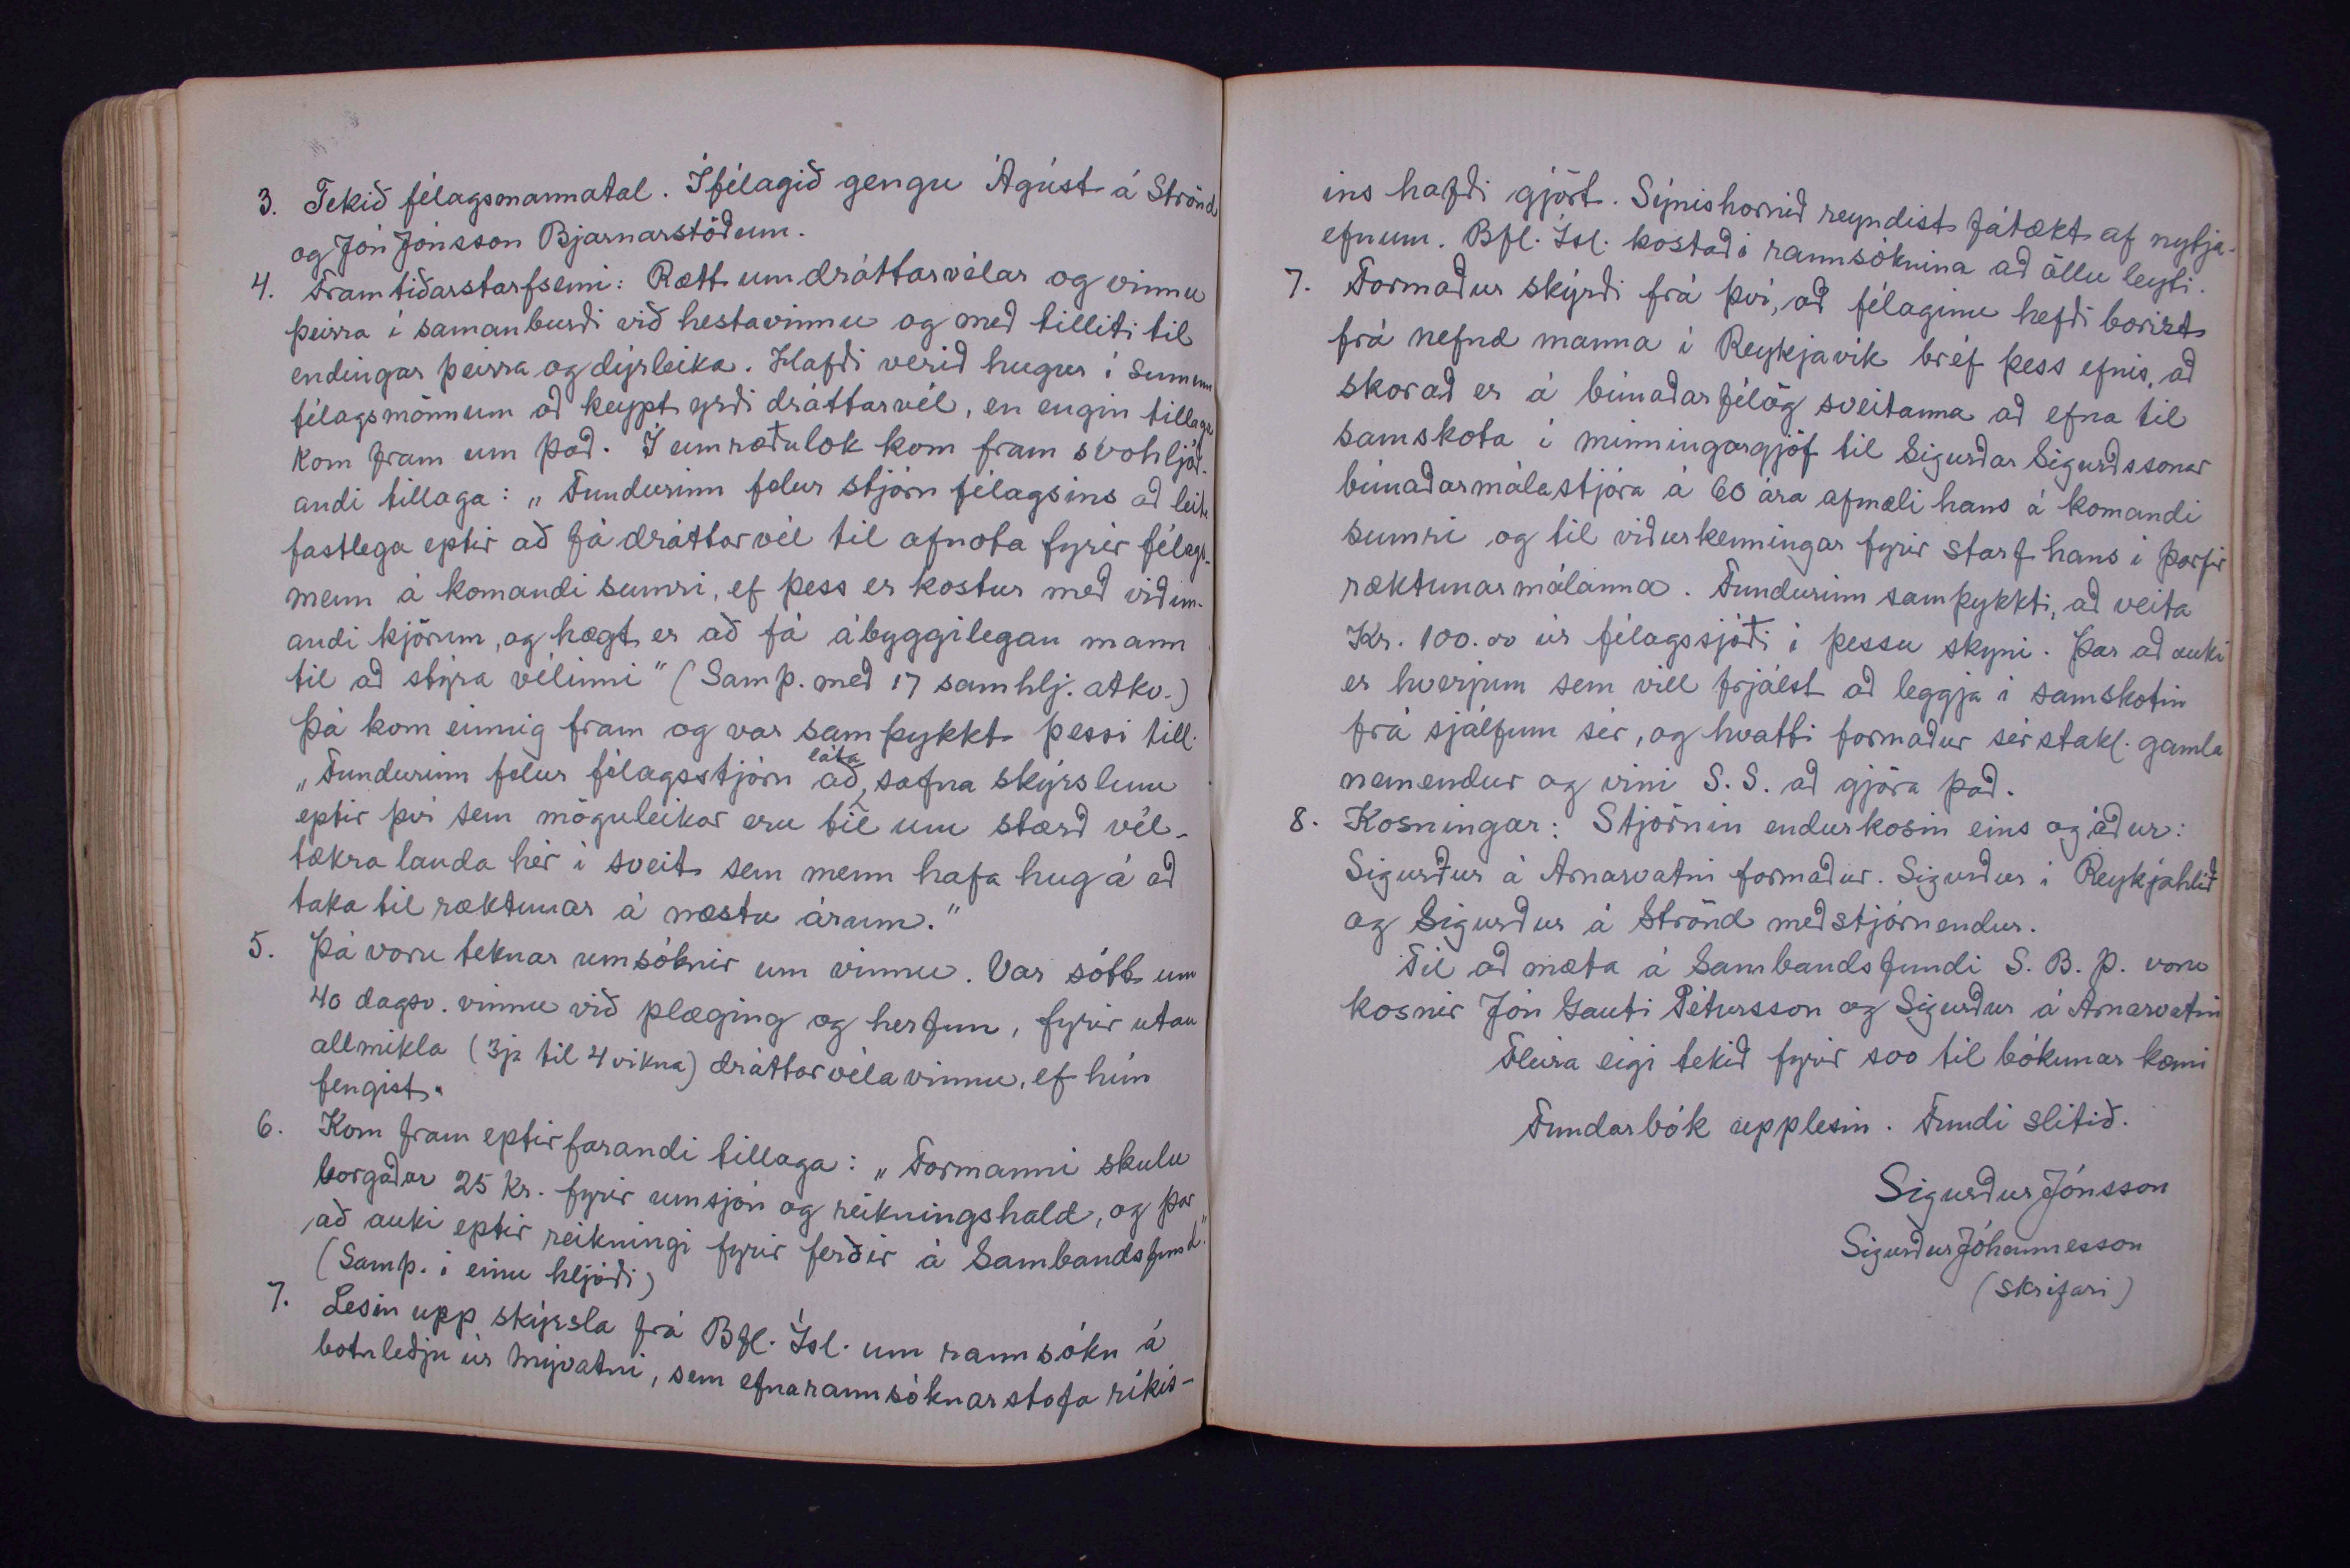 3. Tekið félagsmannatal. Í félagið gengu Ágúst á Strönd
og Jón Jónsson Bjarnarstöðum.
4. Framtiðarstarfsemi: Rætt um dráttarvélar og vinnu
þeirra í samanburði við hestavinnu og með tilliti til
endingar þeirra og dýrleika. Hafði verið hugur í sumum
félagsmönnum að keypt yrði dráttarvél, en engin tillaga
kom fram um það. Í umræðulok kom fram svohljóð-
andi tillaga: „Fundurinn felur stjórn félagsins að leita
fastlega eptir að fá dráttarvél til afnota fyrir félags-
menn á komandi sumri, ef þess er kostur með viðun-
andi kjörum, og hægt er að fá ábyggilegan mann
til að stýra vélinni" (Samþ. með 17 samhlj. atkv.)
Þá kom einnig fram og var samþykkt þessi till.
„Fundurinn felur félagsstjórn að láta safna skýrslum
eptir því sem möguleikar eru til um stærð vél-
tækra landa hér í sveit sem menn hafa hug á að
taka til ræktunar á næstu árum."
5. Þá voru teknar umsóknir um vinnu. Var sótt um
40 dagsv. vinnu við plæging og herfun, fyrir utan
allmikla (3ja til 4 vikna) dráttarvélavinnu, ef hún
fengist.
6. Kom fram eptirfarandi tillaga: „Formanni skulu
borgaðar 25 kr. fyrir umsjón og reikningshald, og þar
að auki eptir reikningi fyrir ferðir á Sambandsfund."
(Samþ. í einu hljóði)
7. Lesin upp skýrsla frá Bfl. Ísl. um rannsókn á
botnleðju úr Mývatni, sem efnarannsóknarstofa ríkis-
ins hafði gjört. Sýnishornið reyndist fátækt af nytja-
efnum. Bfl. Ísl. kostaði rannsóknina að öllu leyti.
7. Formaður skýrði frá því, að félaginu hefði borizt
frá nefnd manna í Reykjavík bréf þess efnis, að
skorað er á búnaðarfélög sveitanna að efna til
samskota í minningargjöf til Sigurðar Sigurðssonar
búnaðarmálastjóra á 60 ára afmæli hans á komandi
sumri og til viðurkenningar fyrir starf hans í þarfir
ræktunarmálanna. Fundurinn samþykkti, að veita
Kr. 100.00 úr félagssjóði í þessu skyni. Þar að auki
er hverjum sem vill frjálst að leggja í samskotin
frá sjálfum sér, og hvatti formaður sérstakl. gamla
nemendur og vini S. S. að gjöra það.
8. Kosningar: Stjórnin endurkosin eins og áður:
Sigurður á Arnarvatni formaður. Sigurður í Reykjahlíð
og Sigurður á Strönd meðstjórnendur.
Til að mæta á Sambandsfundi S. B. Þ. voru
kosnir Jón Gauti Pétursson og Sigurður á Arnarvatni
Fleira eigi tekið fyrir svo til bókunar kæmi
Fundarbók upplesin. Fundi slitið.
Sigurður Jónsson
Sigurður Jóhannesson
(skrifari)